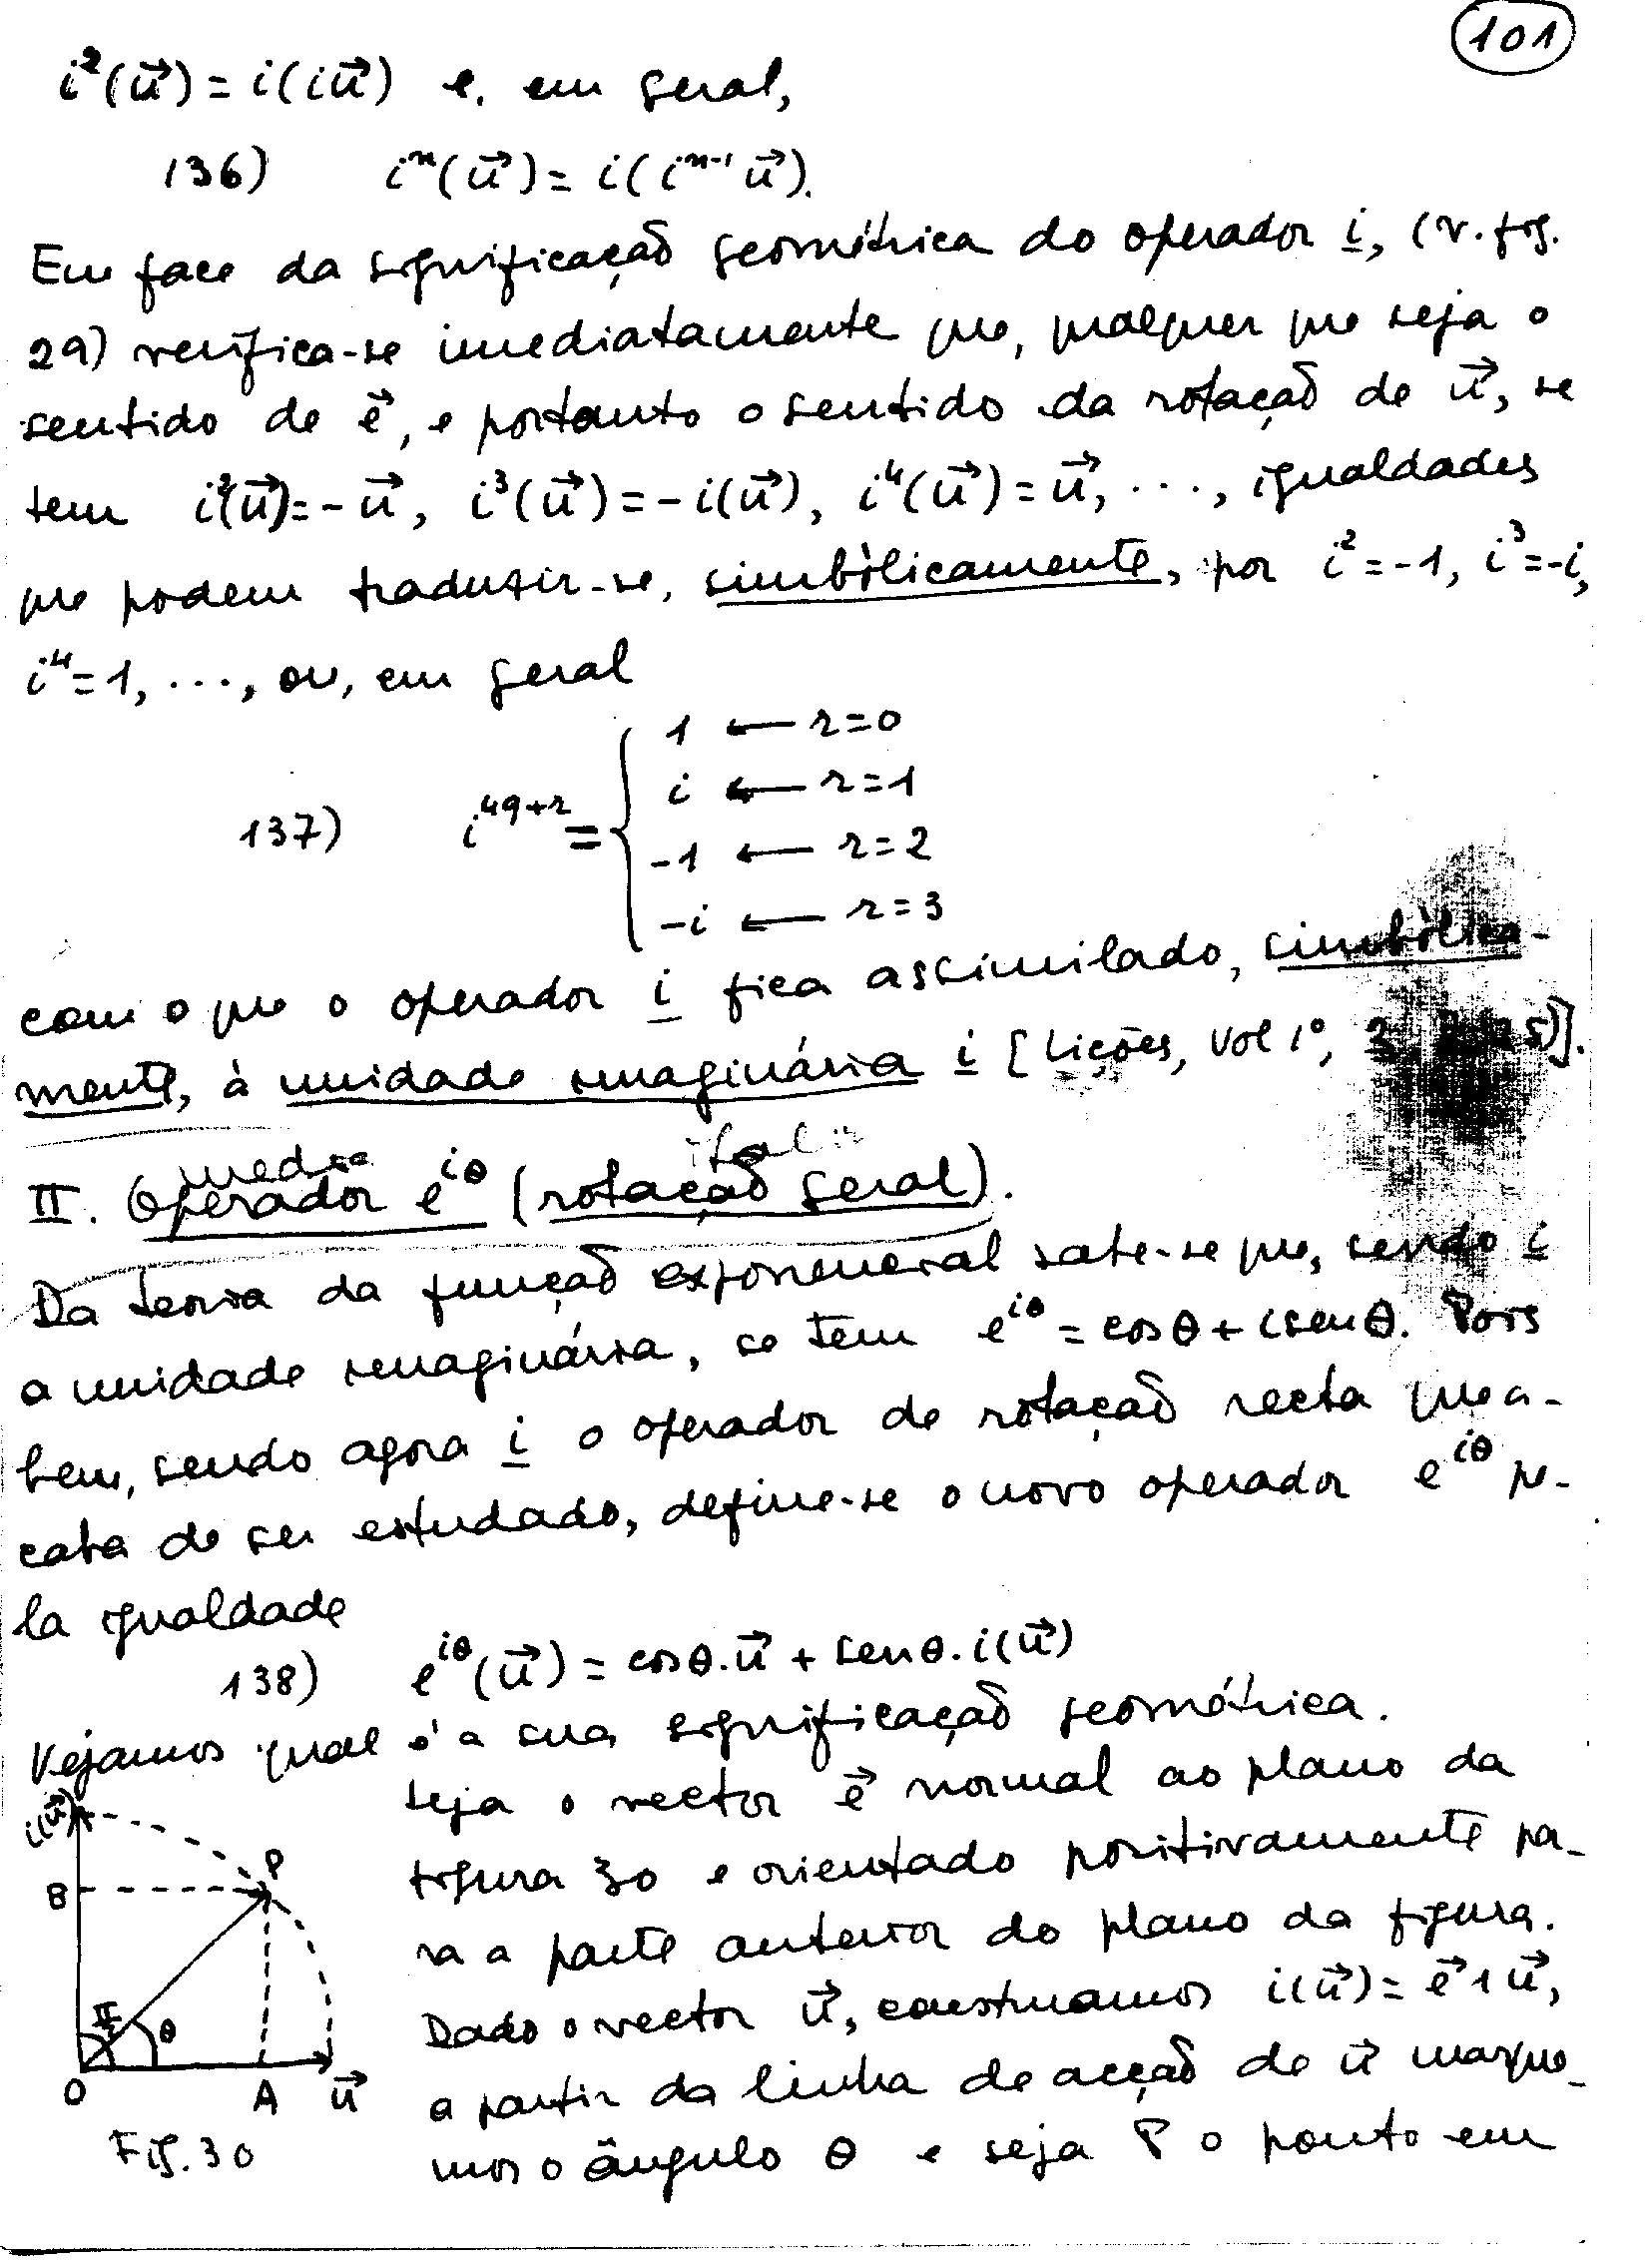 101
i²(u⃗) = i(iu⃗) e, em geral,
136) iⁿ(u⃗) = i(iⁿ⁻¹u⃗).
Em face da significação geométrica do operador i, (v. fig.
29) verifica-se imediatamente que, qualquer que seja o
sentido de e⃗, e portanto o sentido da rotação de u⃗, se
tem i²(u⃗) = -u⃗, i³(u⃗) = -i(u⃗), i⁴(u⃗) = u⃗, ..., igualdades
que podem traduzir-se, simbòlicamente, por i² = -1, i³ = -i,
i⁴ = 1, ..., ou, em geral
1 ← r=0
i ← r=1
137) i^(4q+r) = {
-1 ← r=2
-i ← r=3
com o que o operador i fica assimilado, simbòlica-
mente, à unidade imaginária i [Lições, Vol 1º,
media
II. Operador e^(iθ) (rotação geral).
Da teoria da função exponencial sabe-se que, sendo i
a unidade imaginária, se tem e^(iθ) = cosθ + i senθ. Pois
bem, sendo agora i o operador de rotação recta que a-
caba de ser estudado, define-se o novo operador e^(iθ) pe-
la igualdade
138) e^(iθ)(u⃗) = cosθ.u⃗ + senθ.i(u⃗)
Vejamos qual é a sua significação geométrica.
Seja o vector e⃗ normal ao plano da
figura 30 e orientado positivamente pa-
ra a parte anterior do plano da figura.
Dado o vector u⃗, construamos i(u⃗) = e⃗ ∧ u⃗,
a partir da linha de acção de u⃗ marque-
mos o ângulo θ e seja P o ponto em
i(u⃗)
P
B
π/2 θ
O A u⃗
Fig. 30